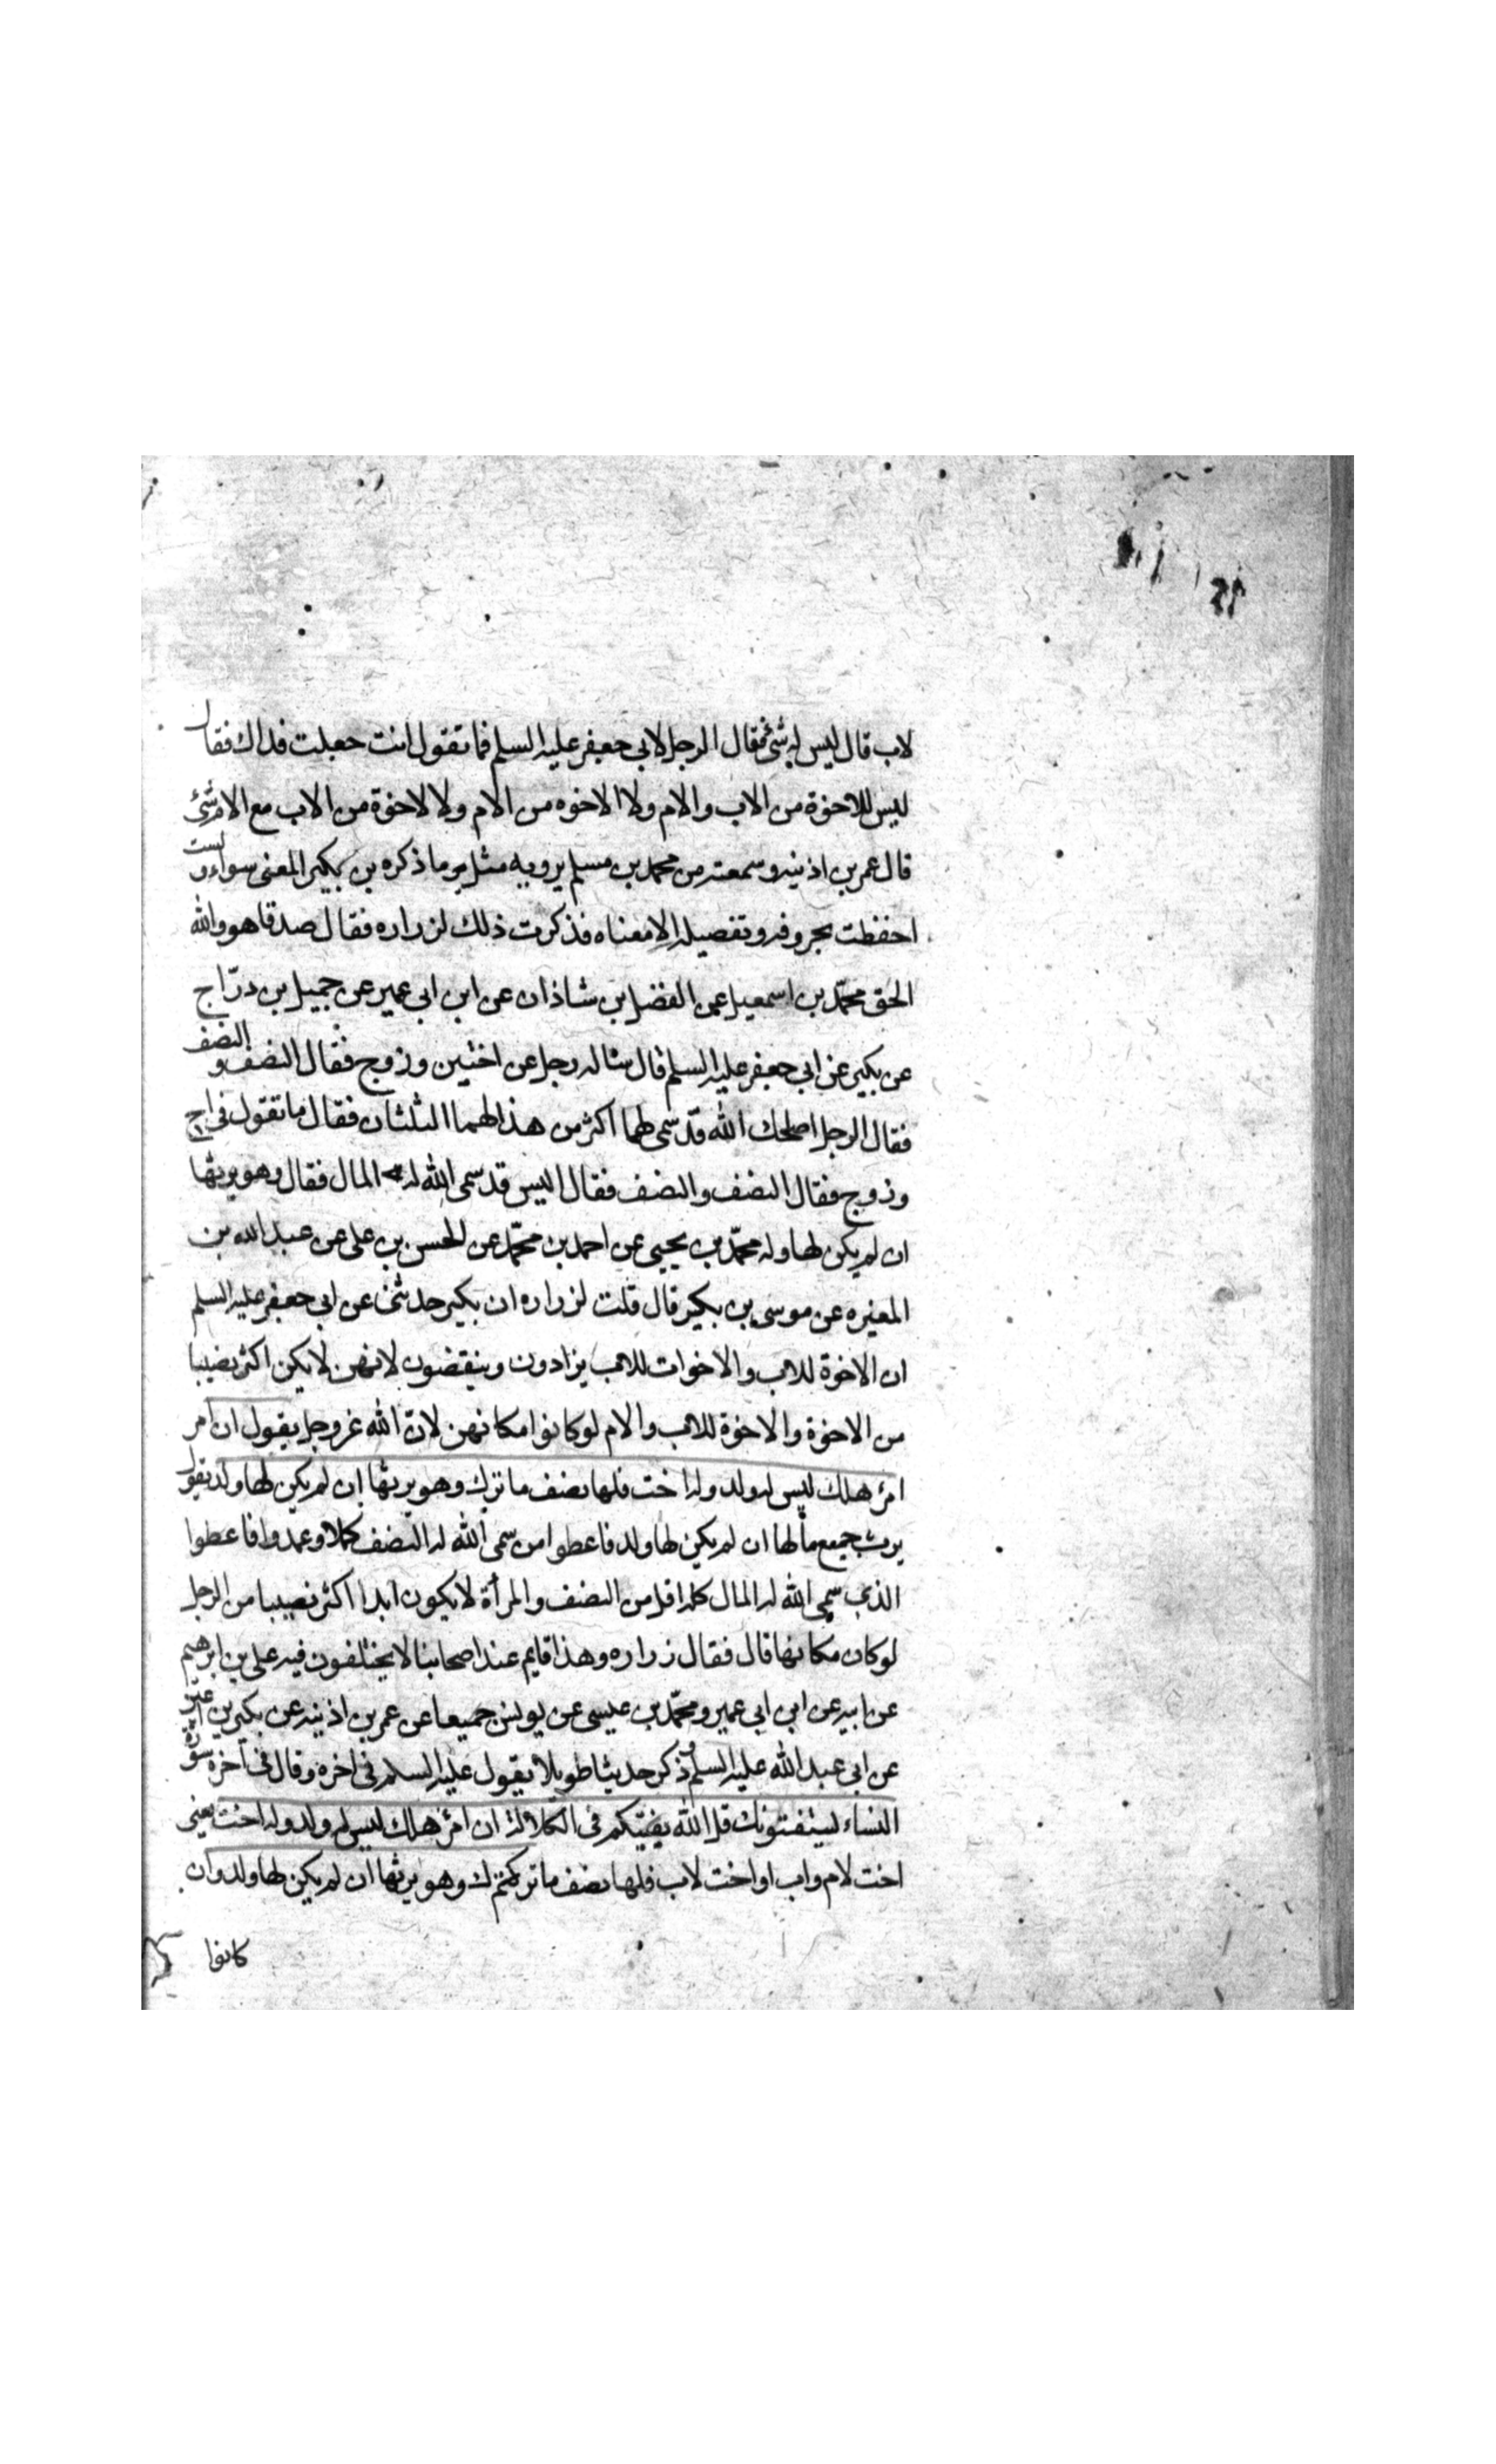 لاب قال ليس له شئ فقال الرجل لابي جعفر عليه السلم فما تقول انت جعلت فداك فقال
ليس للاخوة من الاب والام ولا الاخوه من الام ولا الاخوة من الاب مع الام شئ
قال عمر بن اذينه وسمعته من محمد بن مسلم يرويه مثل ما ذكره بن بكير المعنى سواء ولست
احفظت بحروفه وتفصيله الا معناه فذكرت ذلك لزراره فقال صدقا هو والله
الحق محمّد بن اسمعيل عن الفضل بن شاذان عن ابن ابي عمير عن جميل بن درّاج
عن بكير عن ابي جعفر عليه السلم قال سئاله رجل عن اختين وزوج فقال النصف والنصف
فقال الرجل اصلحك الله قد سمى لهما اكثر من هذا لهما الثلثان فقال ما تقول في اخ
وزوج فقال النصف والنصف فقال اليس قد سمى الله له المال فقال وهو يرثها
ان لم يكن لها ولد محمّد بن يحيى عن احمد بن محمّد عن الحسن بن على عن عبد الله بن
المغيره عن موسى بن بكير قال قلت لزراره ان بكير حدثنى عن ابي جعفر عليه السلم
ان الاخوة للاب والاخوات للاب يزادون وينقصون لانهن لا يكن اكثر نصيبا
من الاخوة والاخوة للاب والام لو كانوا مكانهن لانّ الله عزوجل يقول ان امر
امرؤ هلك ليس له ولد وله اخت فلها نصف ما ترك وهو يرثها ان لم يكن لها ولد يقول
يرث جميع مالها ان لم يكن لها ولد فاعطوا من سمى الله له النصف كملا وعمدوا فاعطوا
الذي سمى الله له المال كله اقل من النصف والمرأة لا يكون ابدا اكثر نصيبا من الرجل
لو كان مكانها قال فقال زراره وهذا قايم عند اصحابنا لا يختلفون فيه على بن ابرهيم
عن ابيه عن ابن ابي عمير ومحمّد بن عيسى عن يونس جميعا عن عمر بن اذينه عن بكير بن اعين
عن ابي عبد الله عليه السلم وذكر حديثا طويلا يقول عليه السلم في اخره وقال في آخره سورة
النساء يستفتونك قل الله يفتيكم في الكلالة ان امرؤ هلك ليس له ولد وله اخت يعني
اخت لام واب او اخت لاب فلها نصف ما ترك وهو يرثها ان لم يكن لها ولد وان
كانوا